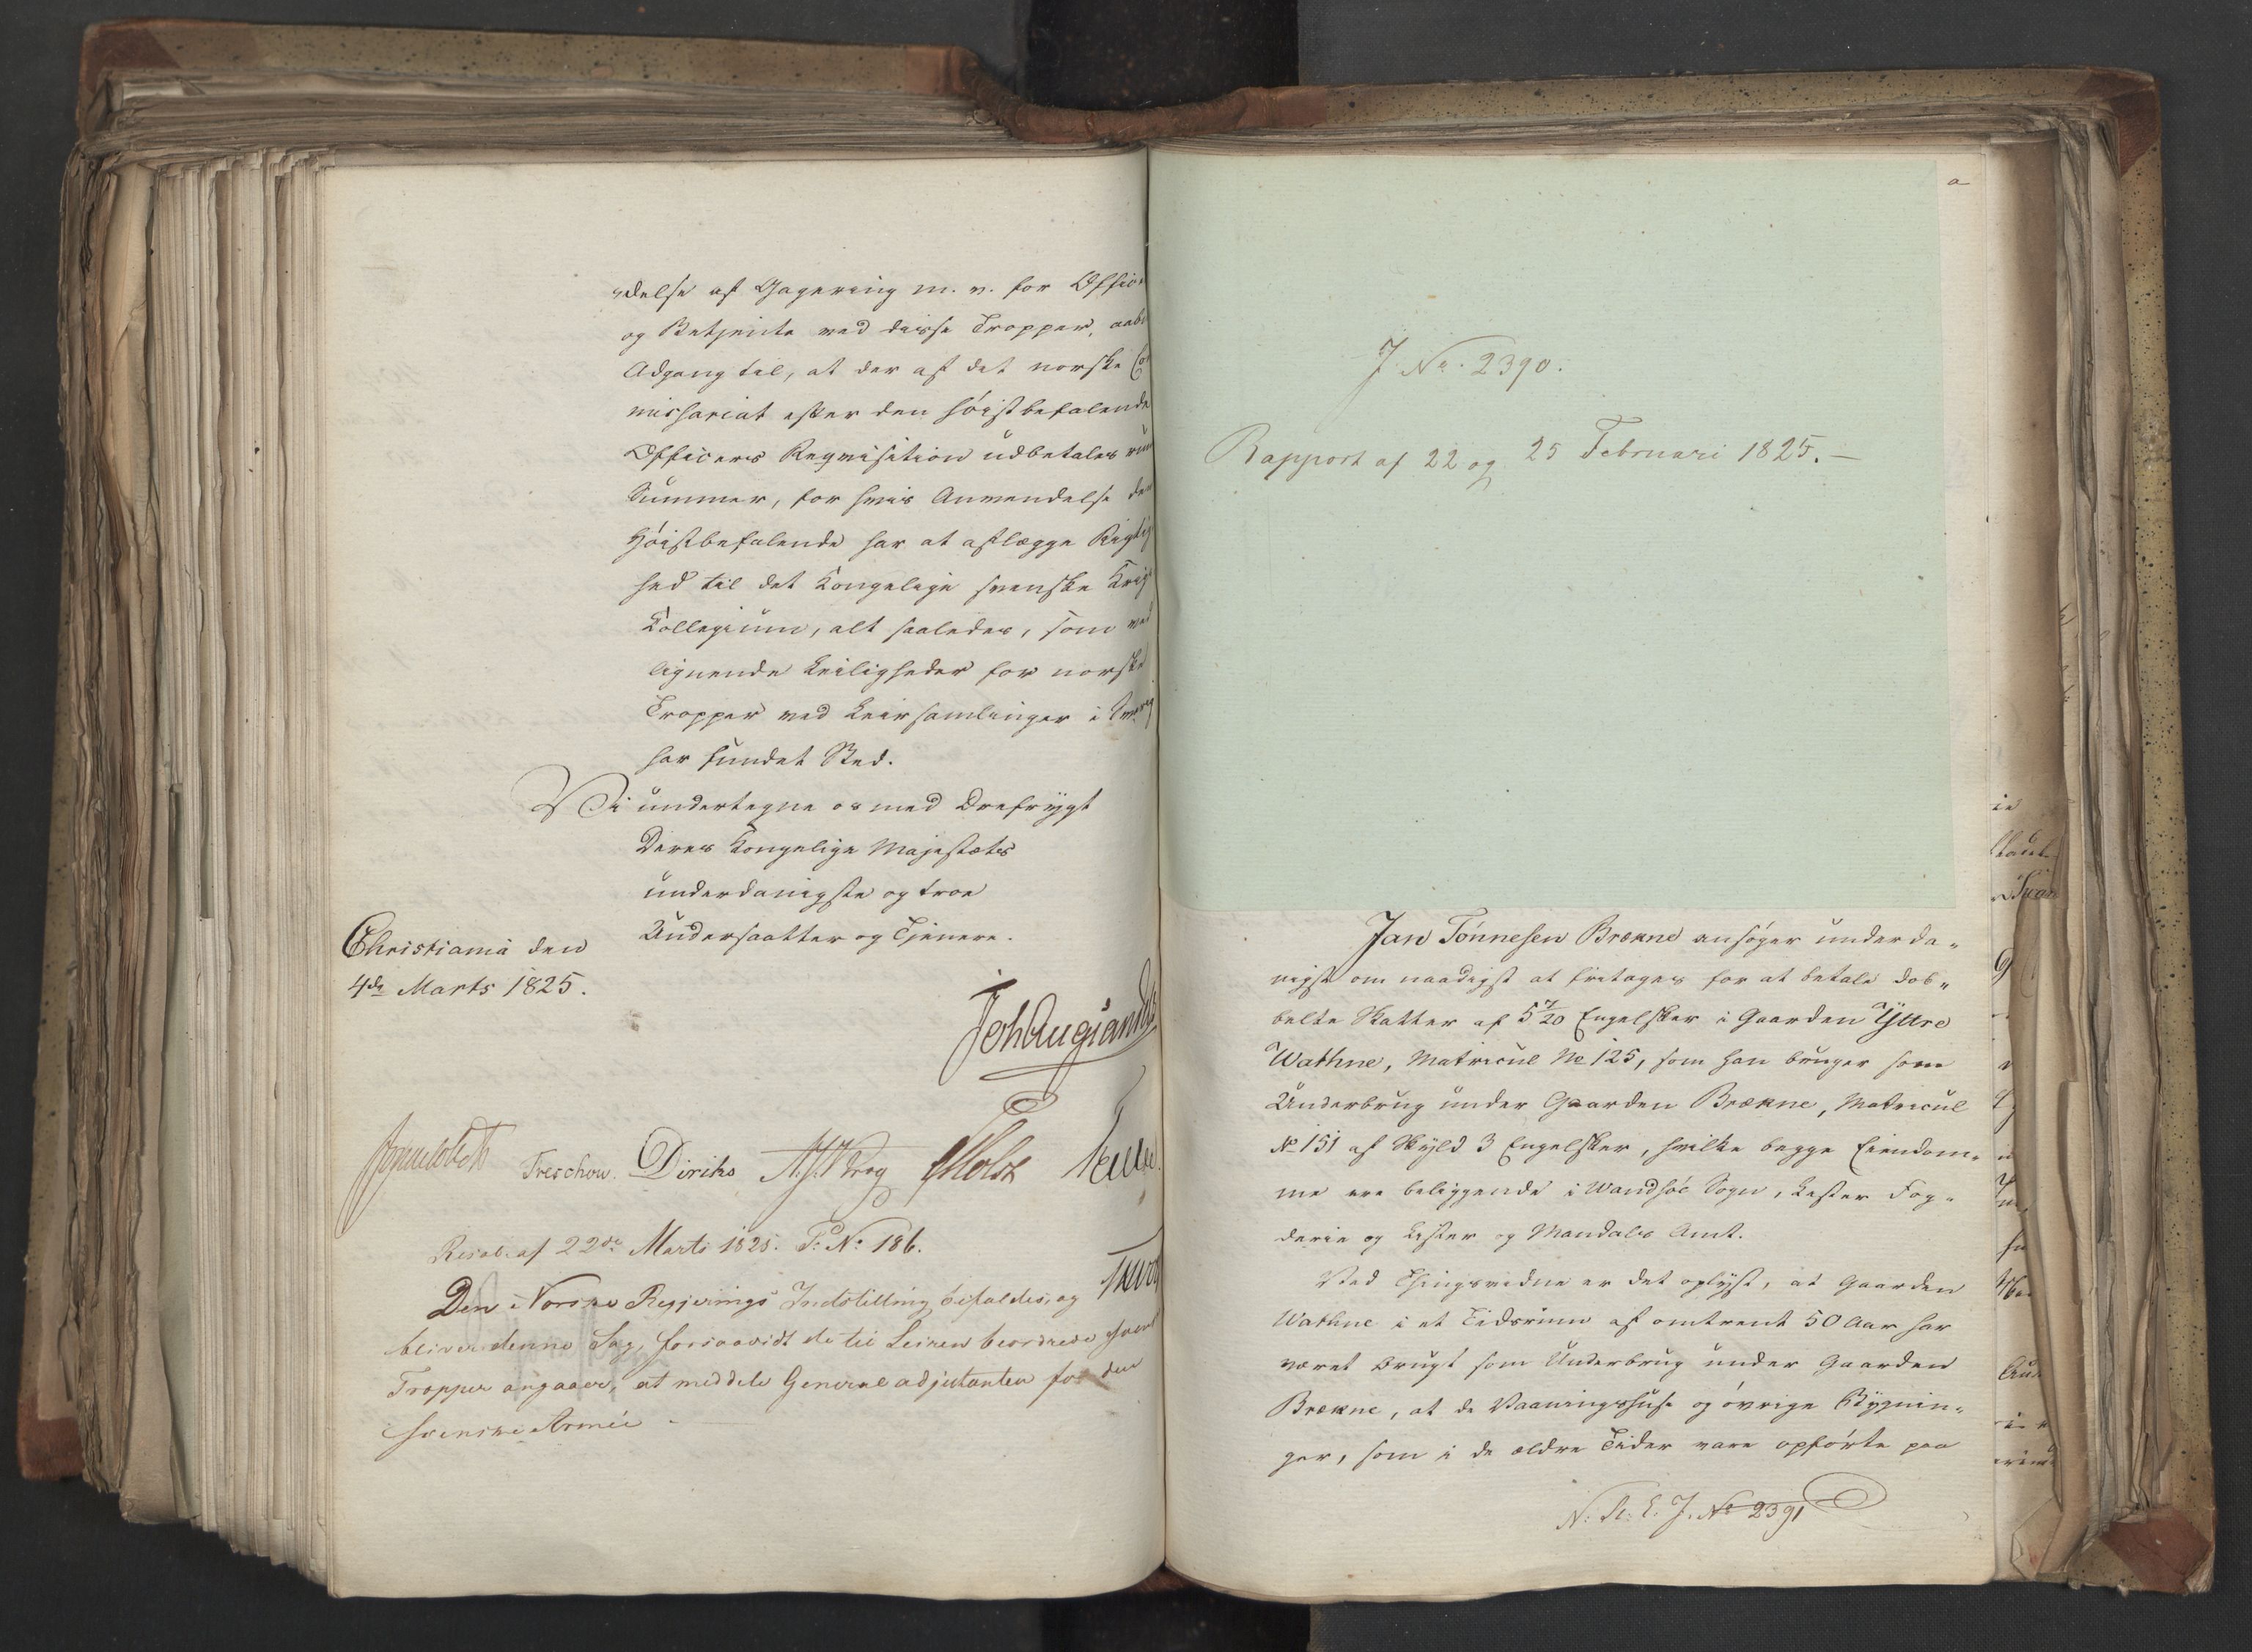 delse af Gagering m. v. for Offici
og Betjente ved disse Tropper, aabn
Adgang til, at der af det norske Co
missariat efter den høistbefalende
Officers Requisition udbetales
Summer, for hvis Anvendelse den
Høistbefalende har at aflægge Rigtig
hed til det Kongelige svenske Krigs
Collegium, alt saaledes, som ved
lignende Leiligheder for norske
Tropper ved Leirsamlinger i Sverig
har fundet Sted.
Vi undertegne os med Ærefrygt
Deres Kongelige Majestæts
underdanigste og troe
Undersaatter og Tjenere.
Christiania den
4de Marts 1825.
Joh Aug Sandels
Sommelhielm Treschow. Diriks Krog PMotzfeldt
Resol. af 22de Marts 1825. P: No: 186.
Den Norske Regjerings Indstilling bifaldes, og
bliver denne Sag, forsaavidt de til Leiren beordrede svenske
Tropper angaaer, at meddele Generaladjutanten for den
svenske Armée
a
J. No. 2390.
Rapport af 22 og 25 Februari 1825. —
Jan Tönnesen Brækne ansøger underda„
nigst om naadigst at fritages for at betale dob„
belte Skatter af 5 7/20 Engelsker i Gaarden Yttre
Wathne, Matricul No 125, som han bruger som
Underbrug under Gaarden Brækne, Matricul
No 151 af Skyld 3 Engelsker, hvilke begge Eiendom„
me ere beliggende i Wandsøe Sogn, Lister Fog„
derie og Lister og Mandals Amt.
Ved Thingsvidne er det oplyst, at Gaarden
Wathne i et Tidsrum af omtrent 50 Aar har
været brugt som Underbrug under Gaarden
Brækne, at de Vaaningshuse og øvrige Bygnin„
ger, som i de ældre Tider vare opførte paa
N: R: E. J. No 2391